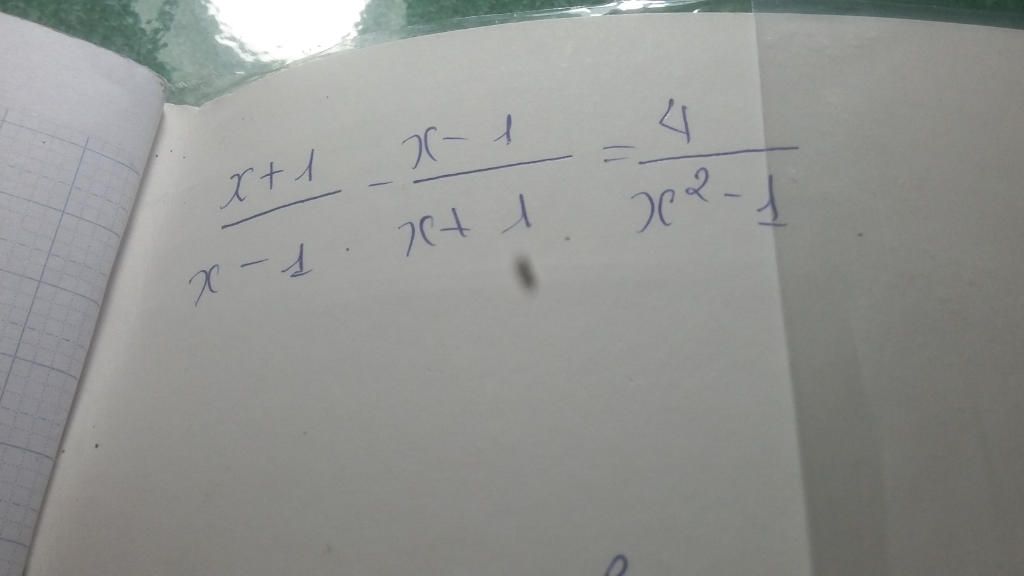 x+1/x-1 - x-1/x+1 = 4/x²-1